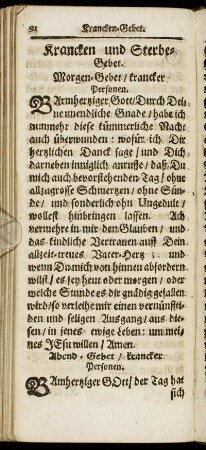 92 Krancken-Gebet.
Krancken und Sterbe-
Gebet.
Morgen-Gebet / krancker
Personen.
BArmhertziger Gott / Durch Dei-
ne unendliche Gnade / habe ich
nunmehr diese kümmerliche Nacht
auch überwunden : wofür ich Dir
hertzlichen Danck sage / und Dich
darneben inniglich anruffe / daß Du
mich auch bevorstehenden Tag / ohne
allzugrosse Schmertzen / ohne Sün-
de / und sonderlich ohn Ungedult /
wollest hinbringen lassen. Ach
vermehre in mir den Glauben / und
das kindliche Vertrauen auff Dein
allzeit-treues Vater-Hertz : und
wenn Du mich von hinnen abfordern
wilst / es sey heut oder morgen / oder
welche Stunde es dir gnädig gefallen
wird / so verleihe mir einen vernünffti-
gen und seligen Ausgang / aus die-
sen / in jenes ewige Leben : um mei-
nes JEsu willen / Amen.
Abend-Gebet / krancker
Personen.
BArmhertziger GOtt / der Tag hat
sich